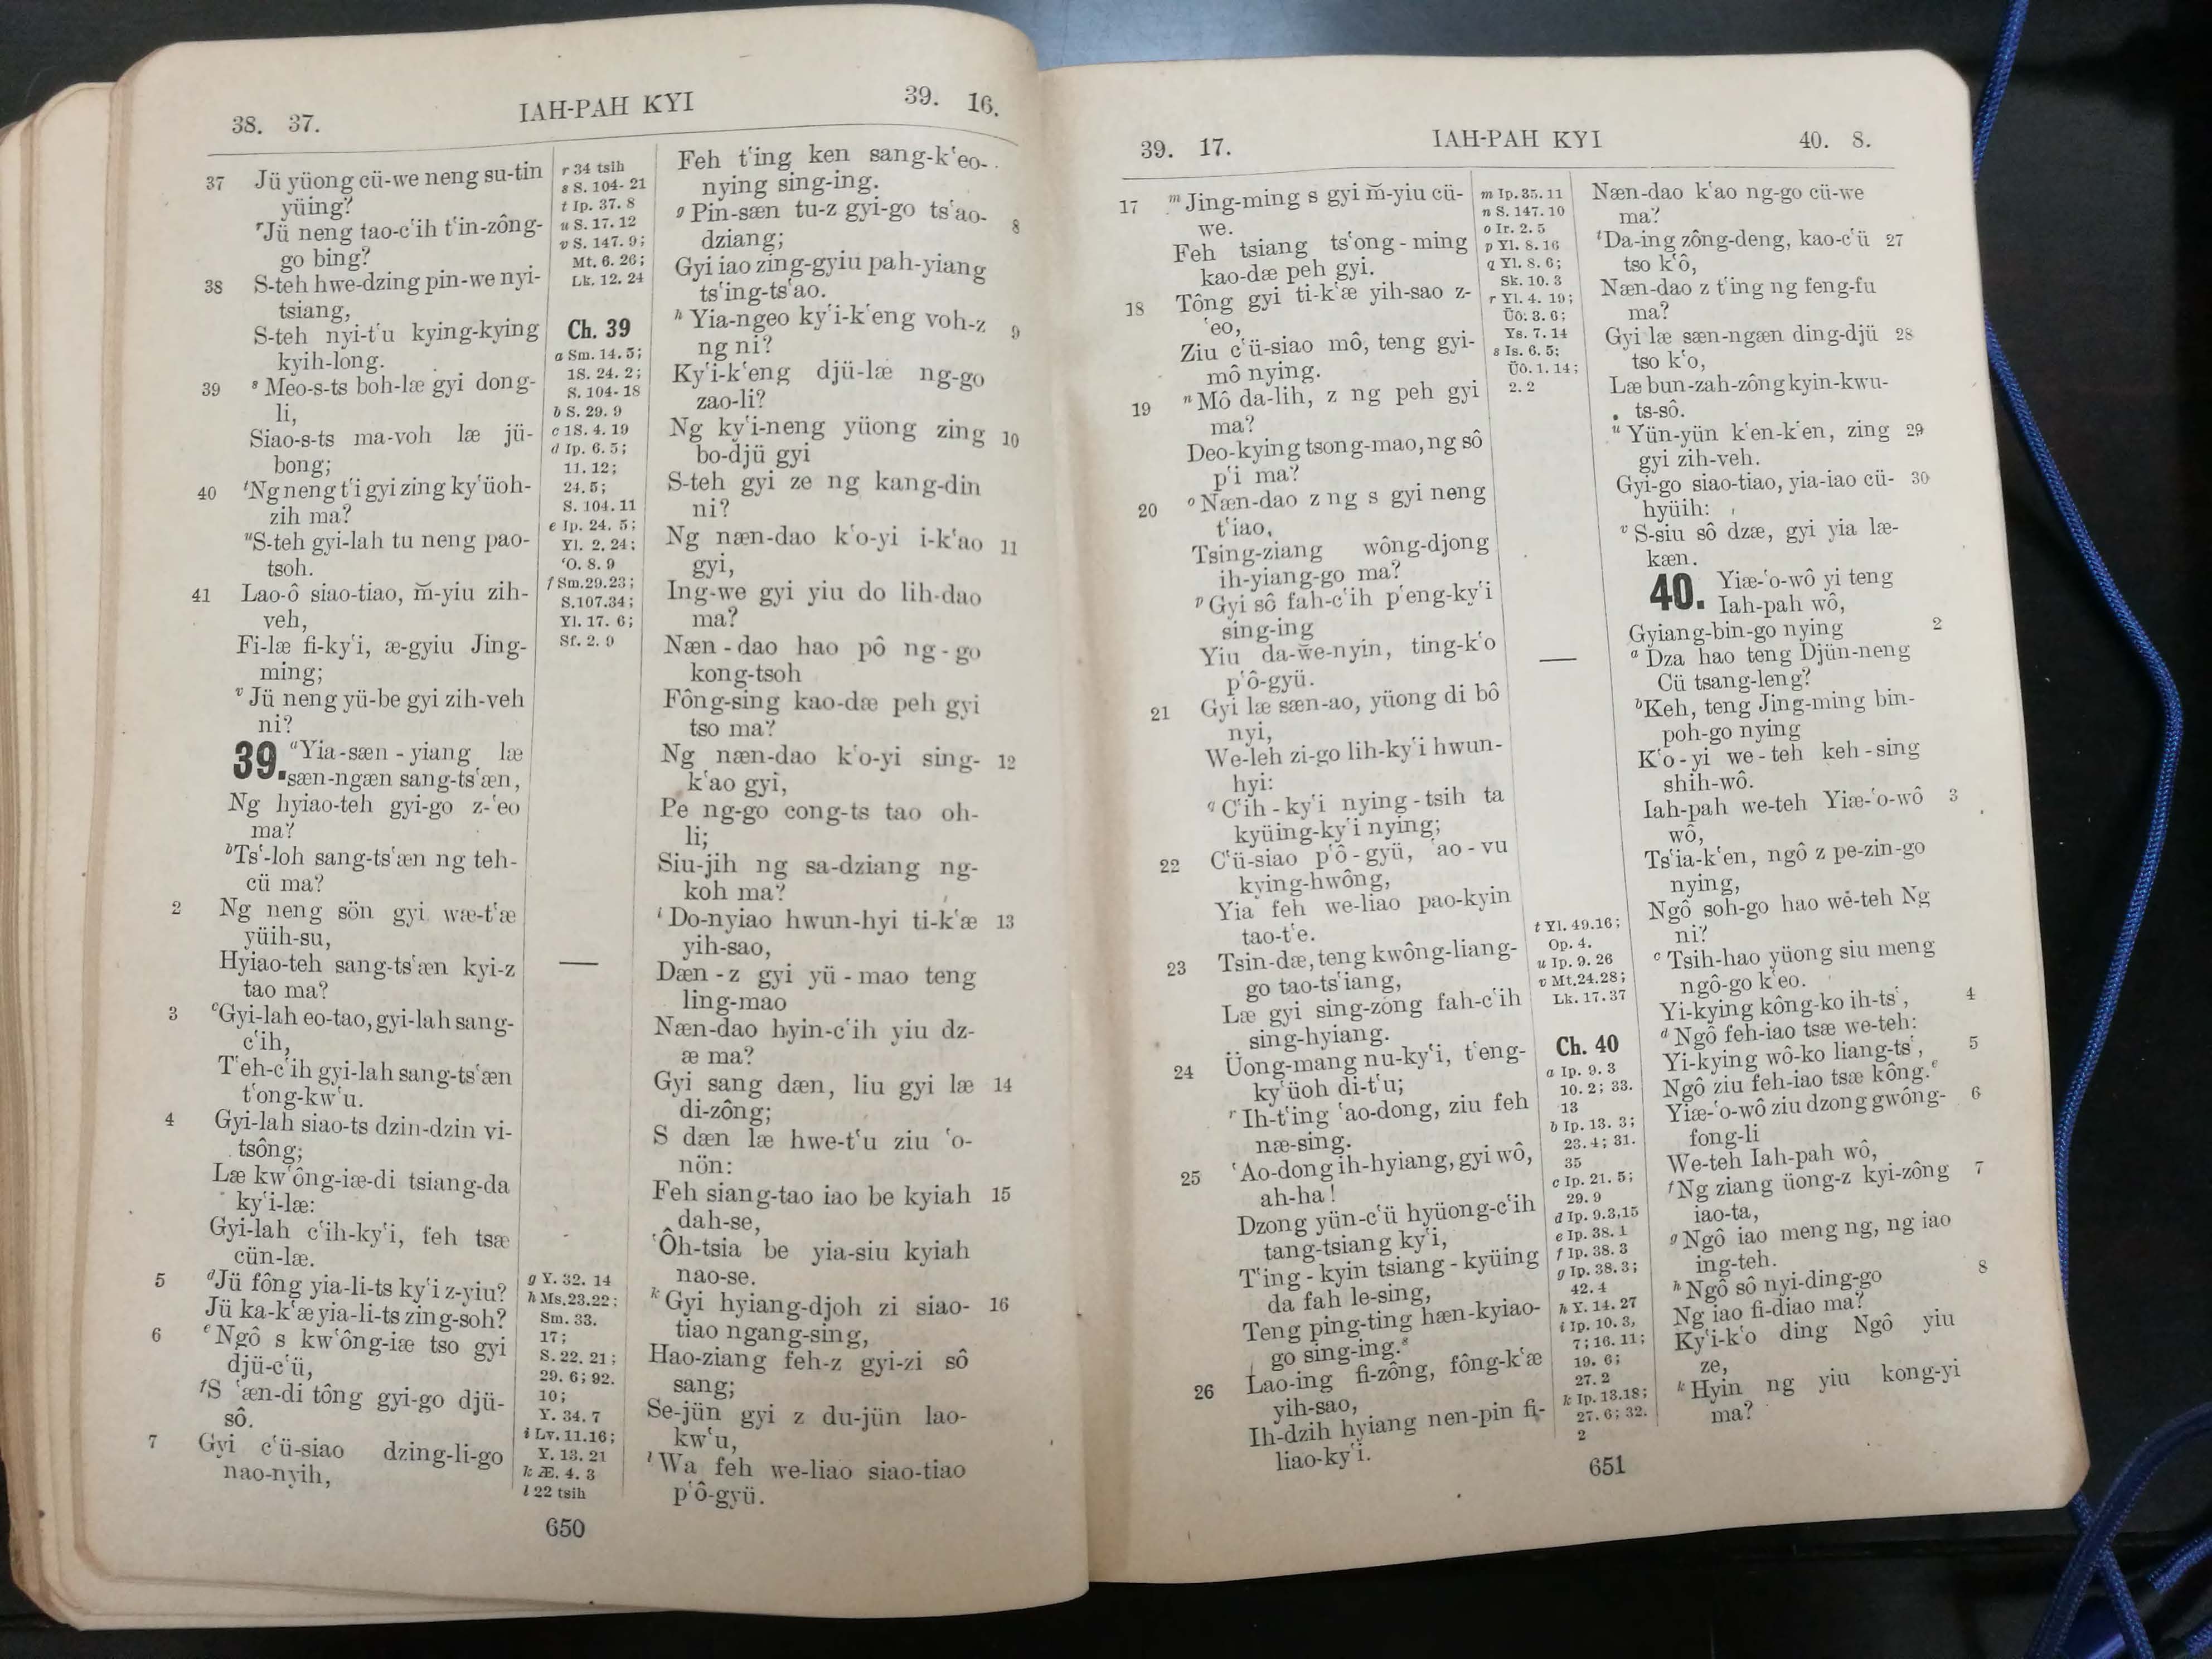 38. 37.
IAH-PAH KYI
39. 16.
37 Jü yüong cü-we neng su-tin
yüing?
rJü neng tao-c‘ih t‘in-zông-
go bing?
38 S-teh hwe-dzing pin-we nyi-
tsiang,
S-teh nyi-t‘u kying-kying
kyih-long.
39 s Meo-s-ts boh-læ gyi dong-
li,
Siao-s-ts ma-voh læ jü-
bong;
40 tNg neng t‘i gyi zing ky‘üoh-
zih ma?
uS-teh gyi-lah tu neng pao-
tsoh.
41 Lao-ô siao-tiao, m̆-yiu zih-
veh,
Fi-læ fi-ky‘i, æ-gyiu Jing-
ming;
v Jü neng yü-be gyi zih-veh
ni?
39. aYia-sæn-yiang læ
sæn-ngæn sang-ts‘æn,
Ng hyiao-teh gyi-go z-‘eo
ma?
bTs‘-loh sang-ts‘æn ng teh-
cü ma?
2 Ng neng sön gyi wæ-t‘æ
yüih-su,
Hyiao-teh sang-ts‘æn kyi-z
tao ma?
3 cGyi-lah eo-tao, gyi-lah sang-
c‘ih,
T‘eh-c‘ih gyi-lah sang-ts‘æn
t‘ong-kw‘u.
4 Gyi-lah siao-ts dzin-dzin vi-
tsông;
Læ kw‘ông-iæ-di tsiang-da
ky‘i-læ:
Gyi-lah c‘ih-ky‘i, feh tsæ
cün-læ.
5 dJü fông yia-li-ts ky‘i z-yiu?
Jü ka-k‘æ yia-li-ts zing-soh?
6 eNgô s kw‘ông-iæ tso gyi
djü-c‘ü,
fS ‘æn-di tông gyi-go djü-
sô.
7 Gyi c‘ü-siao dzing-li-go
nao-nyih,
r 34 tsih
s S. 104- 21
t Ip. 37. 8
u S. 17. 12
v S. 147. 9;
Mt. 6. 26;
Lk. 12. 24
Ch. 39
a Sm. 14. 5;
1S. 24. 2;
S. 104- 18
b S. 29. 9
c 1S. 4. 19
d Ip. 6. 5;
11. 12;
24. 5;
S. 104. 11
e Ip. 24. 5;
Yl. 2. 24;
‘O. 8. 9
f Sm.29.23;
S.107.34;
Yl. 17. 6;
Sf. 2. 9
g Y. 32. 14
h Ms.23.22;
Sm. 33.
17;
S. 22. 21;
29. 6; 92.
10;
Y. 34. 7
i Lv. 11.16;
Y. 13. 21
k Æ. 4. 3
l 22 tsih
Feh t‘ing ken sang-k‘eo-
nying sing-ing.
g Pin-sæn tu-z gyi-go ts‘ao- 8
dziang;
Gyi iao zing-gyiu pah-yiang
ts‘ing-ts‘ao.
h Yia-ngeo ky‘i-k‘eng voh-z 9
ng ni?
Ky‘i-k‘eng djü-læ ng-go
zao-li?
Ng ky‘i-neng yüong zing 10
bo-djü gyi
S-teh gyi ze ng kang-din
ni?
Ng næn-dao k‘o-yi i-k‘ao 11
gyi,
Ing-we gyi yiu do lih-dao
ma?
Næn-dao hao pô ng-go
kong-tsoh
Fông-sing kao-dæ peh gyi
tso ma?
Ng næn-dao k‘o-yi sing- 12
k‘ao gyi,
Pe ng-go cong-ts tao oh-
li;
Siu-jih ng sa-dziang ng-
koh ma?
i Do-nyiao hwun-hyi ti-k‘æ 13
yih-sao,
Dæn-z gyi yü-mao teng
ling-mao
Næn-dao hyin-c‘ih yiu dz-
æ ma?
Gyi sang dæn, liu gyi læ 14
di-zông;
S dæn læ hwe-t‘u ziu ‘o-
nön:
Feh siang-tao iao be kyiah 15
dah-se,
‘Ôh-tsia be yia-siu kyiah
nao-se.
k Gyi hyiang-djoh zi siao- 16
tiao ngang-sing,
Hao-ziang feh-z gyi-zi sô
sang;
Se-jün gyi z du-jün lao-
kw‘u,
l Wa feh we-liao siao-tiao
p‘ô-gyü.
650
39. 17.
IAH-PAH KYI
40. 8.
17 m Jing-ming s gyi m̆-yiu cü-
we.
Feh tsiang ts‘ong-ming
kao-dæ peh gyi.
18 Tông gyi ti-k‘æ yih-sao z-
‘eo,
Ziu c‘ü-siao mô, teng gyi-
mô nying.
19 n Mô da-lih, z ng peh gyi
ma?
Deo-kying tsong-mao, ng sô
p‘i ma?
20 o Næn-dao z ng s gyi neng
t‘iao,
Tsing-ziang wông-djong
ih-yiang-go ma?
p Gyi sô fah-c‘ih p‘eng-ky‘i
sing-ing
Yiu da-we-nyin, ting-k‘o
p‘ô-gyü.
21 Gyi læ sæn-ao, yüong di bô
nyi,
We-leh zi-go lih-ky‘i hwun-
hyi:
q C‘ih-ky‘i nying-tsih ta
kyüing-ky‘i nying;
22 C‘ü-siao p‘ô-gyü, ‘ao-vu
kying-hwông,
Yia feh we-liao pao-kyin
tao-t‘e.
23 Tsin-dæ, teng kwông-liang-
go tao-ts‘iang,
Læ gyi sing-zông fah-c‘ih
sing-hyiang.
24 Üong-mang nu-ky‘i, t‘eng-
ky‘üoh di-t‘u;
r Ih-t‘ing ‘ao-dong, ziu feh
næ-sing.
25 ‘Ao-dong ih-hyiang, gyi wô,
ah-ha!
Dzong yün-c‘ü hyüong-c‘ih
tang-tsiang ky‘i,
T‘ing-kyin tsiang-kyüing
da fah le-sing,
Teng ping-ting hæn-kyiao-
go sing-ing.s
26 Lao-ing fi-zông, fông-k‘æ
yih-sao,
Ih-dzih hyiang nen-pin fi-
liao-ky‘i.
m Ip. 35. 11
n S. 147. 10
o Ir. 2. 5
p Yl. 8. 16
q Yl. 8. 6;
Sk. 10. 3
r Yl. 4. 19;
Üô: 3. 6;
Ys. 7. 14
s Is. 6. 5;
Üô. 1. 14;
2. 2
t Yl. 49.16;
Op. 4.
u Ip. 9. 26
v Mt.24.28;
Lk. 17.37
Ch. 40
a Ip. 9. 3
10. 2; 33.
13
b Ip. 13. 3;
23. 4; 31.
35
c Ip. 21. 5;
29. 9
d Ip. 9.3,15
e Ip. 38. 1
f Ip. 38. 3
g Ip. 38. 3;
42. 4
h Y. 14. 27
i Ip. 10. 3,
7; 16. 11;
19. 6;
27. 2
k Ip. 13.18;
27. 6; 32.
2
Næn-dao k‘ao ng-go cü-we
ma?
tDa-ing zông-deng, kao-c‘ü 27
tso k‘ô,
Næn-dao z t‘ing ng feng-fu
ma?
Gyi læ sæn-ngæn ding-djü 28
tso k‘o,
Læ bun-zah-zông kyin-kwu-
ts-sô.
u Yün-yün k‘en-k‘en, zing 29
gyi zih-veh.
Gyi-go siao-tiao, yia-iao cü- 30
hyüih:
v S-siu sô dzæ, gyi yia læ-
kæn.
40. Yiæ-‘o-wô yi teng
Iah-pah wô,
Gyiang-bin-go nying 2
a Dza hao teng Djün-neng
Cü tsang-leng?
bKeh, teng Jing-ming bin-
poh-go nying
K‘o-yi we-teh keh-sing
shih-wô.
Iah-pah we-teh Yiæ-‘o-wô 3
wô,
Ts‘ia-k‘en, ngô z pe-zin-go
nying,
Ngô soh-go hao we-teh Ng
ni?
c Tsih-hao yüong siu meng
ngô-go k‘eo.
Yi-kying kông-ko ih-ts‘, 4
d Ngô feh-iao tsæ we-teh:
Yi-kying wô-ko liang-ts‘, 5
Ngô ziu feh-iao tsæ kông.e
Yiæ-‘o-wô ziu dzong gwông- 6
fong-li
We-teh Iah-pah wô,
fNg ziang üong-z kyi-zông 7
iao-ta,
g Ngô iao meng ng, ng iao
ing-teh.
h Ngô sô nyi-ding-go 8
Ng iao fi-diao ma?
Ky‘i-k‘o ding Ngô yiu
ze,
k Hyin ng yiu kong-yi
ma?
651